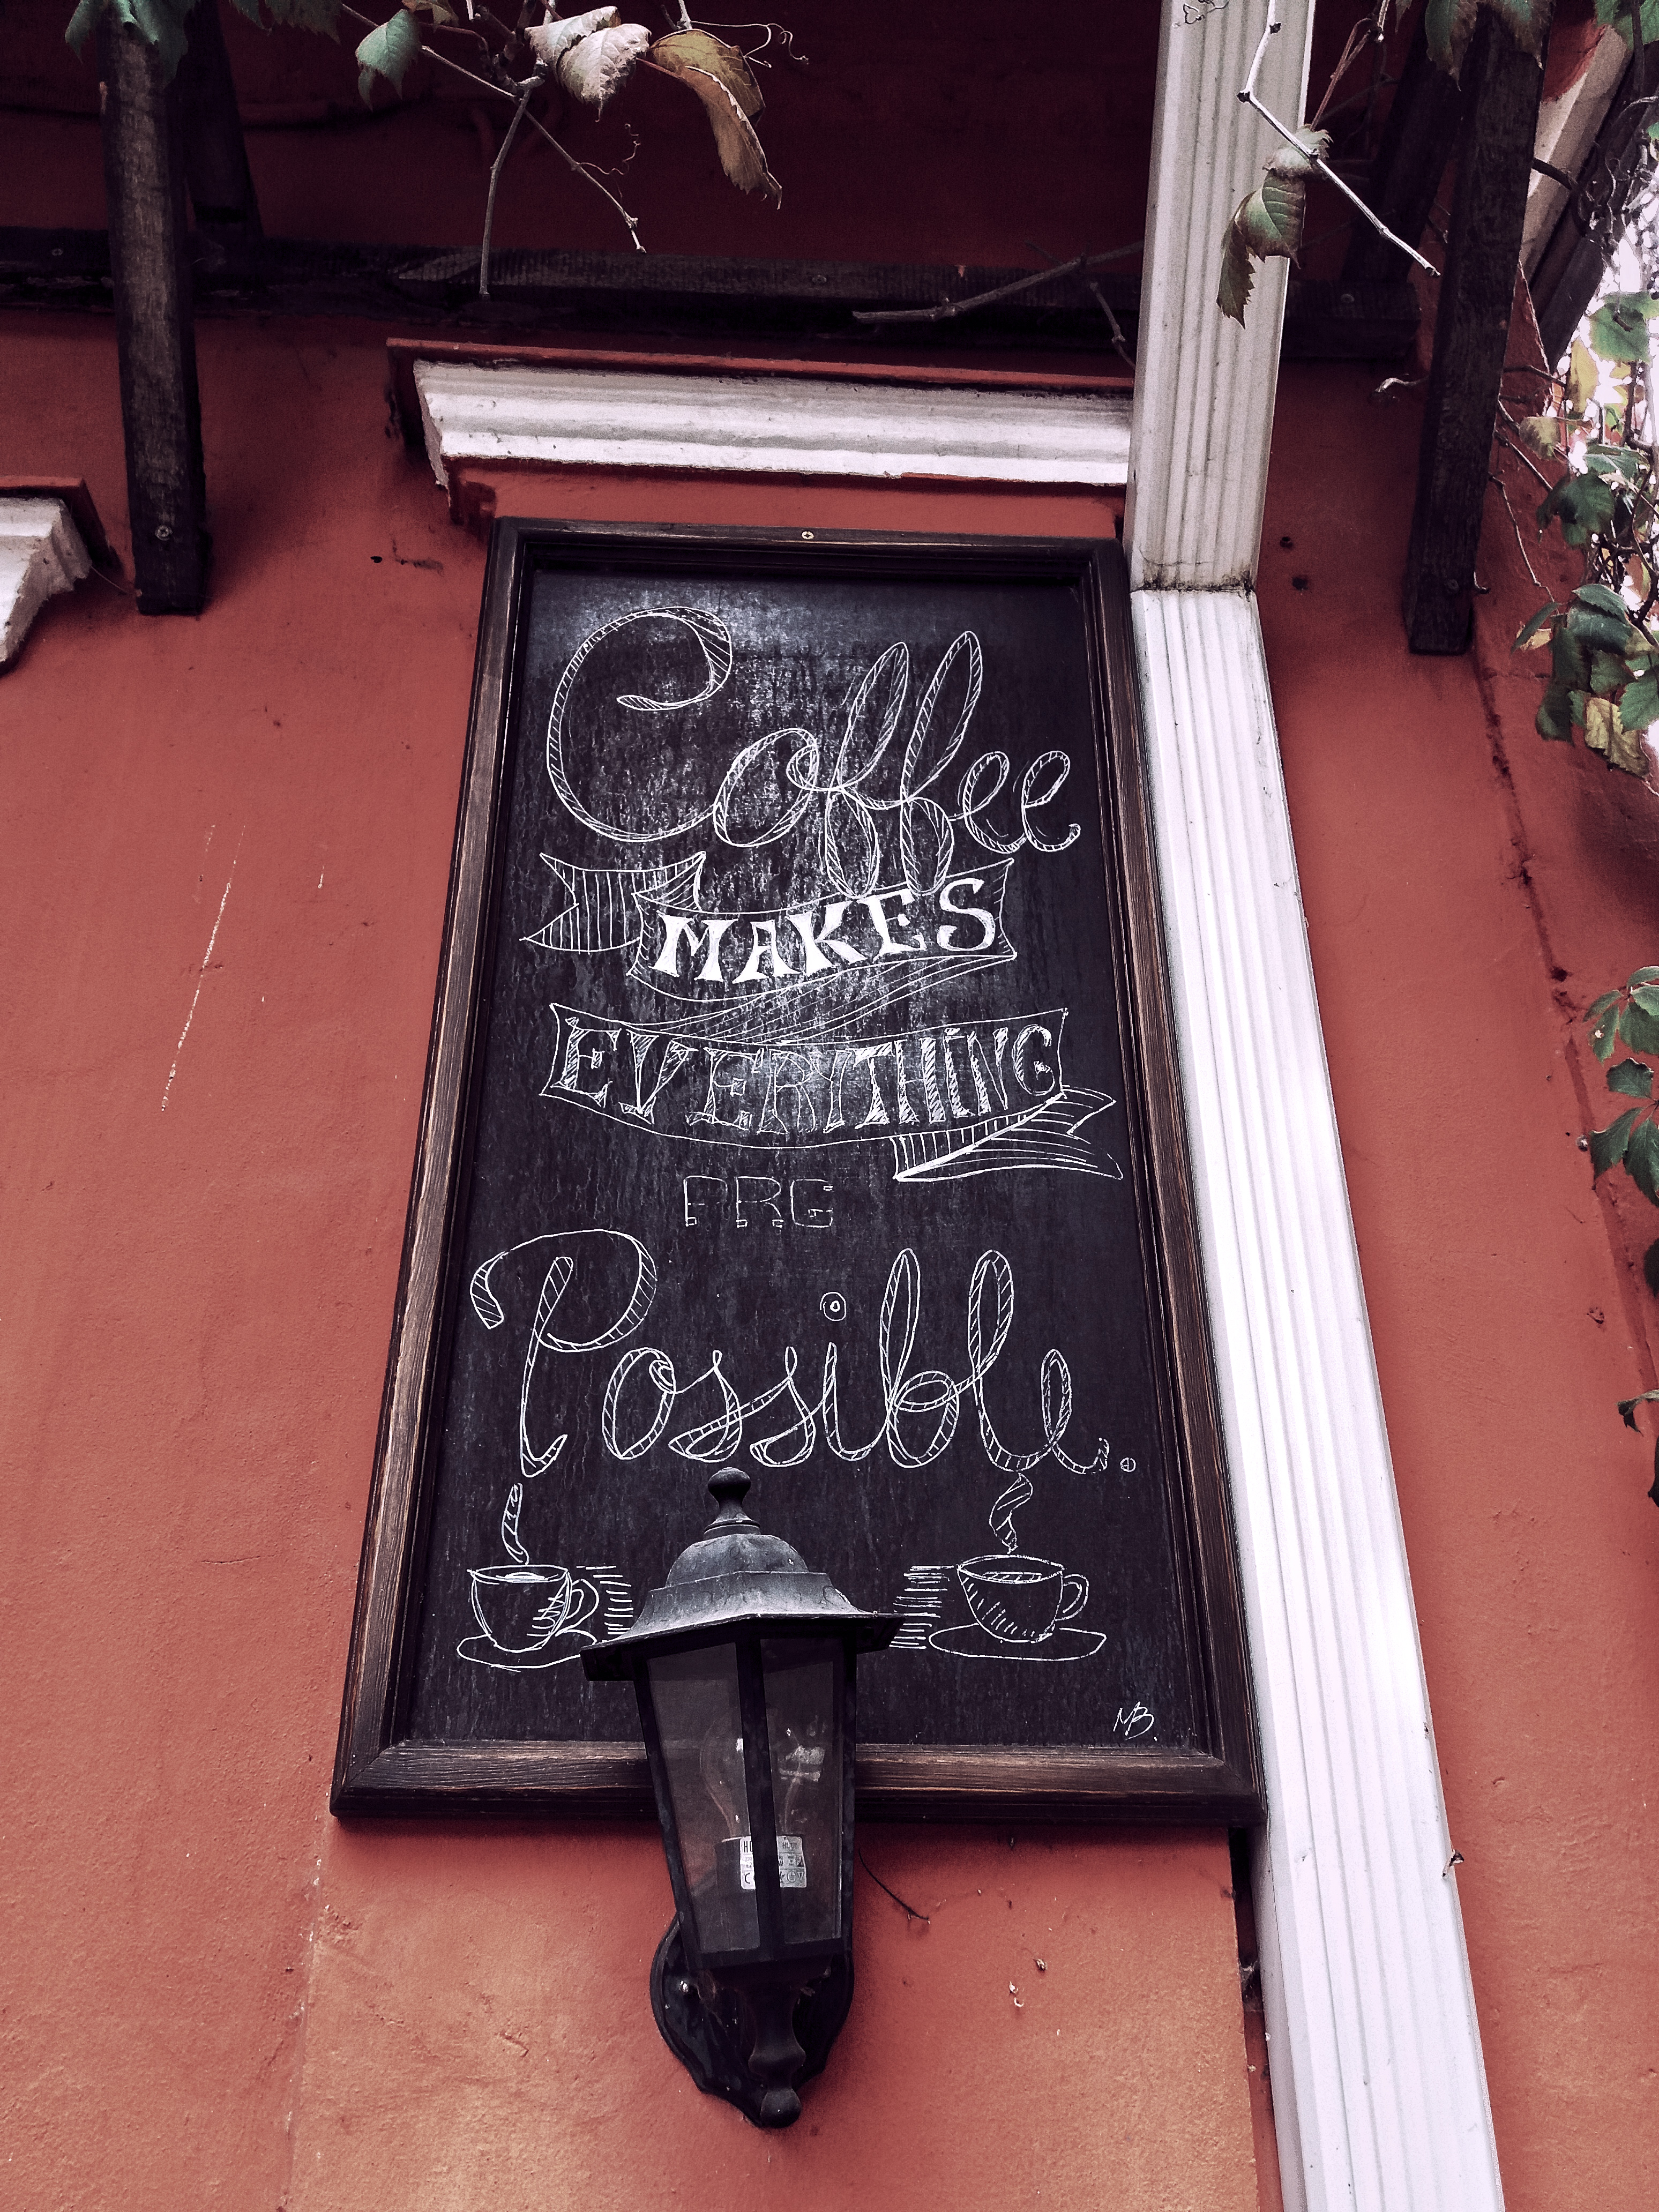 Coffee
MAKES
EVERYTHING
ARE
Possible.
MB